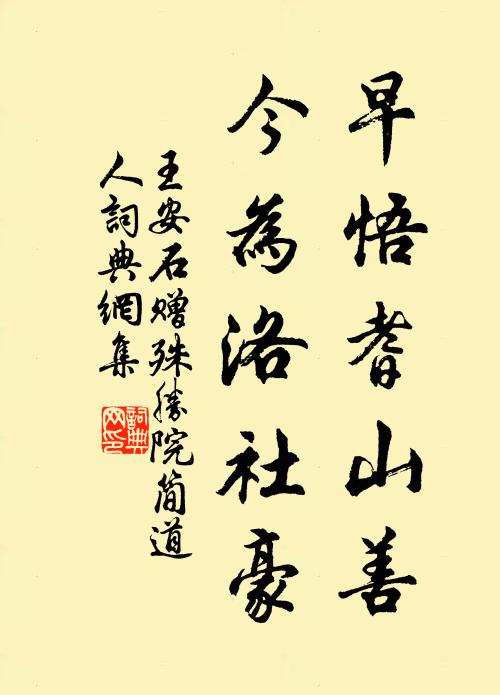 早悟耆山善
今為洛社豪
王安石贈殊勝院簡道
人詞典網集
詞典
网印